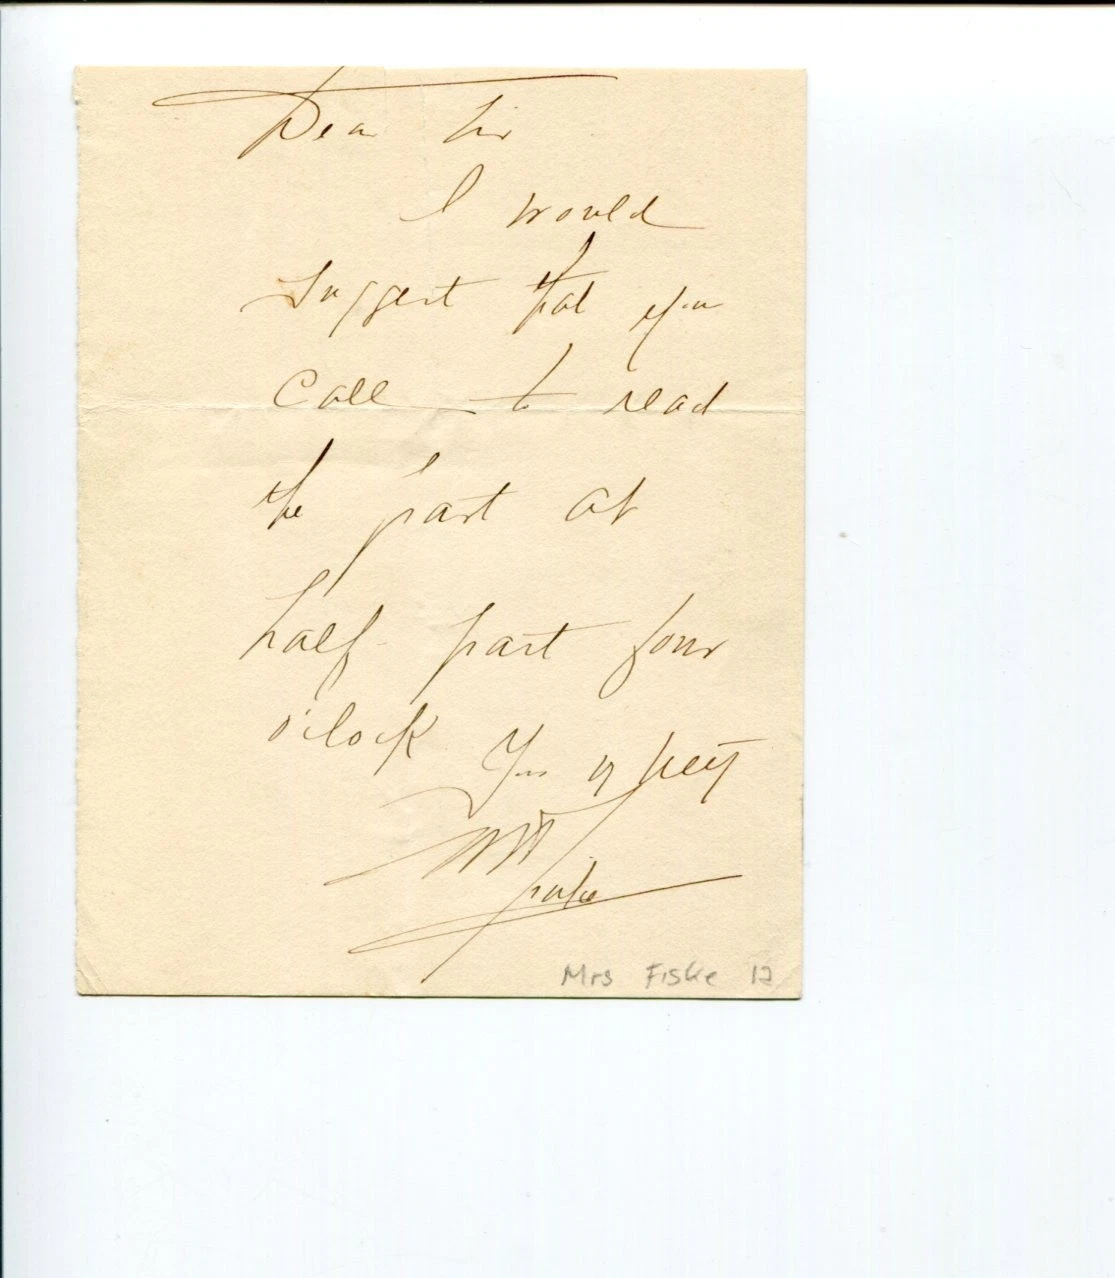 Dear Sir
I would
suggest that you
call to read
the part at
half past four
o'clock
Yrs
Fiske
Mrs Fiske 12